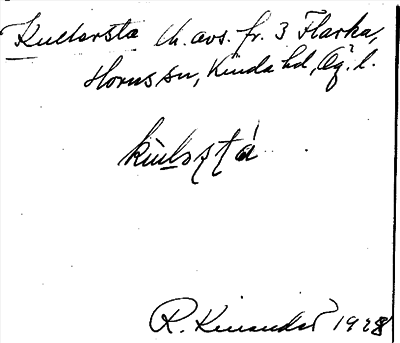 Kullersta th. avs. fr. 3 Flarka,
Horns sn, Kinda hd, Ög. l.
R. Kinander 1928